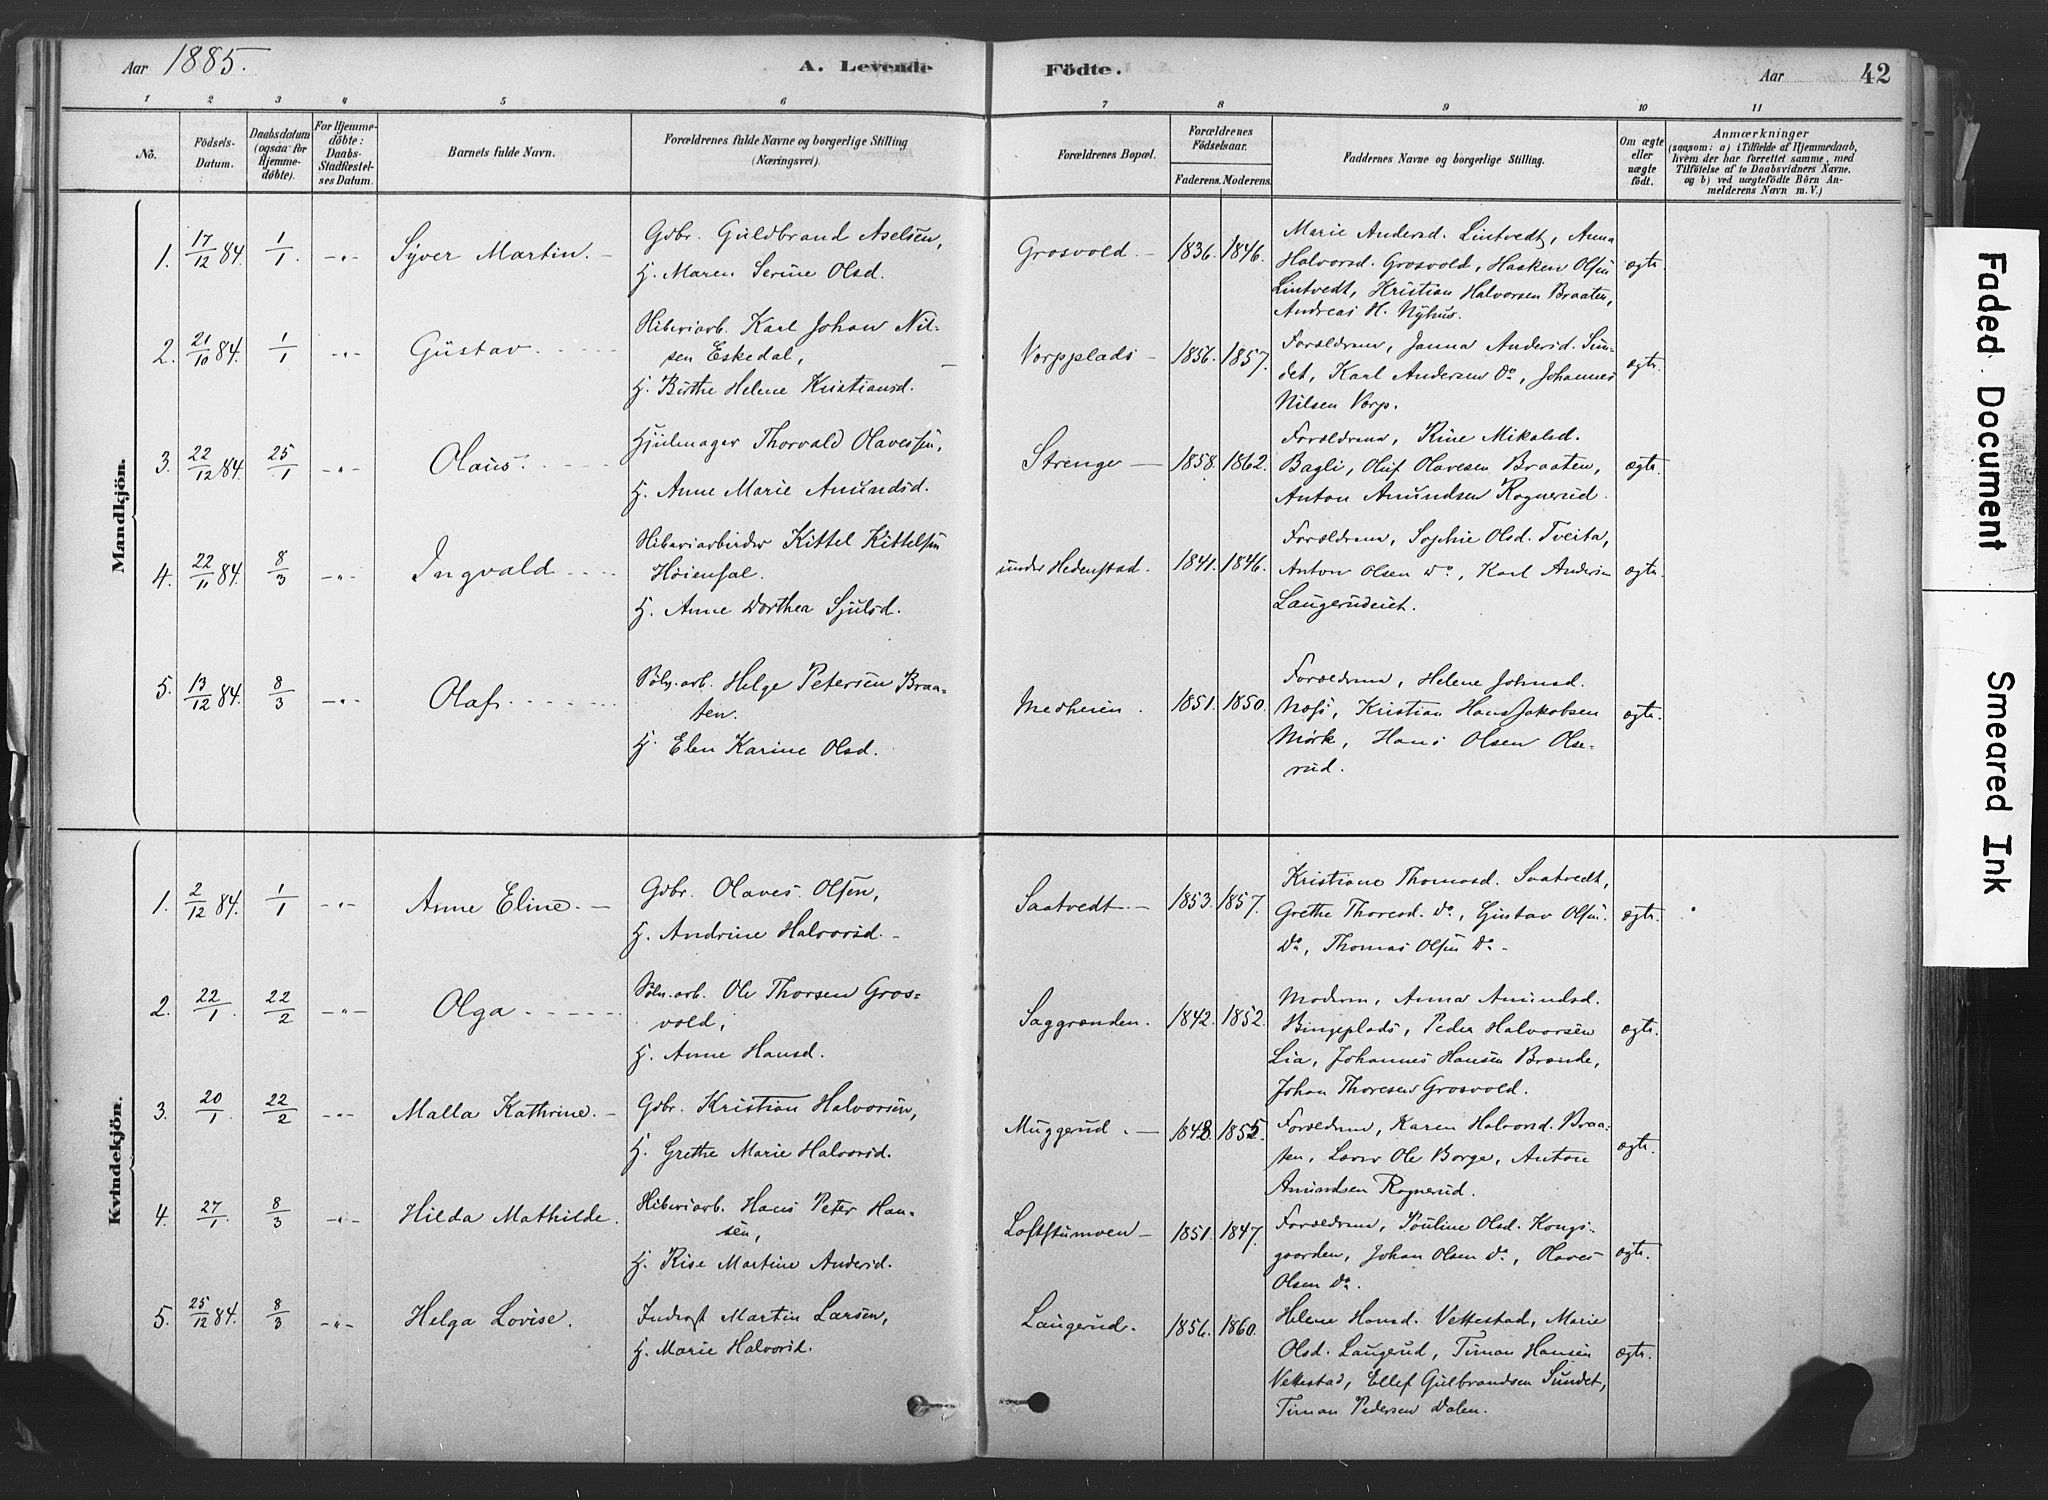 Aar 1885.
A. Levende Födte.
Aar
42
1 2 3 4 5 6 7 8 9 10 11
No.
Födsels-Datum.
Daabsdatum (ogsaa for Hjemme-döbte).
For Hjemme-döbte: Daabs-Stadfæstel-ses Datum.
Barnets fulde Navn.
Forældrenes fulde Navne og borgerlige Stilling (Næringsvei).
Forældrenes Bopæl.
Forældrenes Födselsaar.
Faderens. Moderens.
Faddernes Navne og borgerlige Stilling.
Om ægte eller uægte födt.
Anmærkninger
(saasom: a) i Tilfælde af Hjemmedaab, hvem der har forrettet samme, med Tilföielse af to Daabsvidners Navne, og b) ved uægtefödte Börn An-melderens Navn m. V.)
Mandkjön.
1. 17/12 84. 1/1 -"- Syver Martin. —
Gbr. Guldbrand Axelsen,
H. Maren Serine Olsd.
Grosvold. — 1836. 1846.
Marie Andersd. Lintvedt, Anna
Halvorsd. Grosvold, Haaken Olsen
Lintvedt, Kristian Halvorsen Braaten,
Andreas H. Nyhus.
ægte.
2. 21/10 84. 1/1 -"- Gustav.
Karl Johan Nil-
sen Eskedal,
H. Birthe Helene Kristiansd.
Vorpplads — 1856. 1857.
Forældrene, Janna Andersd. Sun-
det, Karl Andersen Do, Johannes
Nilsen Vorp.
ægte.
3. 22/12 84. 25/1 -"- Olaus.
Hjulmager Thorvald Olavessen,
H. Anne Marie Amundsd.
Strenge — 1858. 1862.
Forældrene, Kine Mikalsd.
Bagli, Oluf Olavesen Braaten,
Anton Amundsen Rognerud.
ægte.
4. 22/11 84. 8/3 -"- Ingvald
Kittel Kittelsen
Høiensal.
H. Anne Dorthea Sjulsd.
under Hedenstad. 1841. 1846.
Forældrene, Sophie Olsd. Tveita,
Anton Olsen Do, Karl Andersen
Laugerudeiet.
ægte.
5. 13/12 84. 8/3 -"- Olaf.
Sølv.arb. Helge Petersen Braa-
ten.
H. Elen Karine Olsd.
Medheien. 1851. 1850.
Forældrene, Helene Johnsd.
Kristian Hans Jakobsen
Mørk, Hans Olsen Olse-
rud.
ægte.
Kvindekjön.
1. 2/12 84. 1/1 -"- Anne Eline. —
Gbr. Olaves Olsen,
H. Andrine Halvorsd. —
Saatvedt. — 1853. 1857.
Kristiane Thomasd. Saatvedt,
Grethe Thoresd. Do, Gustav Olsen
Do, Thomas Olsen Do. —
ægte.
2. 22/1 22/2 -"- Olga
Sølv.arb. Ole Thorsen Gros-
vold,
H. Anne Hansd.
Saggrenden. 1842. 1852.
Moderen, Anna Amundsd.
Bingeplads, Peder Halvorsen
Lia, Johannes Hansen
Johan Thoresen Grosvold.
ægte.
3. 20/1 22/2 -"- Malla Kathrine. —
Gbr. Kristian Halvorsen,
H. Grethe Marie Halvorsd.
Muggerud. — 1848. 1855.
Forældrene, Karen Halvorsd. Braa-
ten, Ole Borge, Anton
Amundsen Rognerud.
ægte.
4. 27/1 8/3 -"- Hilda Mathilde.
Hans Peter Han-
sen,
H. Kise Martine Andersd.
Loftstumoen — 1851. 1847.
Forældrene, Pouline Olsd. Kongs-
gaarden, Johan Olsen Do, Olaves
Olsen Do.
ægte.
5. 25/12 84. 8/3 -"- Helga Lovise.
Inderst Martin Larsen,
H. Marie Halvorsd.
Laugerud. 1856. 1860.
Helene Hansd. Vettestad, Marie
Olsd. Laugerud, Timan Hansen
Vettestad, Ellef Gulbrandsen Sundet,
Timan Pedersen Dalen.
ægte.
Faded Document
Smeared Ink